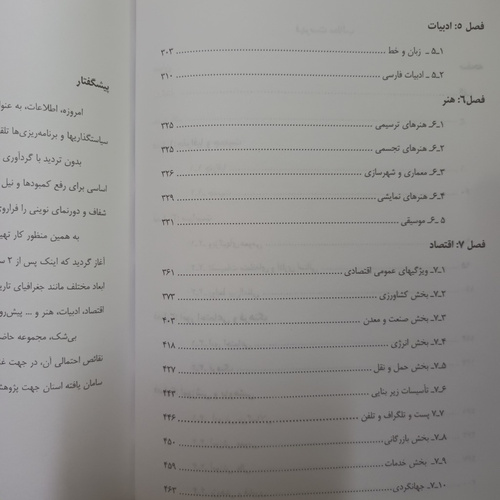 فصل ۵: ادبیات
۱ـ۵ـ زبان و خط ۳۰۳
۲ـ۵ـ ادبیات فارسی ۳۱۰
فصل۶: هنر
۱ـ۶ـ هنرهای ترسیمی ۳۲۵
۲ـ۶ـ هنرهای تجسمی ۳۲۵
۳ـ۶ـ معماری و شهرسازی ۳۲۶
۴ـ۶ـ هنرهای نمایشی ۳۲۹
۵ـ۶ـ موسیقی ۳۳۱
فصل ۷: اقتصاد
۱ـ۷ـ ویژگیهای عمومی اقتصادی ۳۶۱
۲ـ۷ـ بخش کشاورزی ۳۷۳
۳ـ۷ـ بخش صنعت و معدن ۴۰۳
۴ـ۷ـ بخش انرژی ۴۱۸
۵ـ۷ـ بخش حمل و نقل ۴۲۷
۶ـ۷ـ تأسیسات زیر بنایی ۴۴۳
۷ـ۷ـ پست و تلگراف و تلفن ۴۴۶
۸ـ۷ـ بخش بازرگانی ۴۵۰
۹ـ۷ـ بخش خدمات ۴۵۹
۱۰ـ۷ـ جهانگردی ۴۶۳
پیشگفتار
امروزه، اطلاعات، به عنوا
سیاستگذاریها و برنامه‌ریزی‌ها تلق
بدون تردید با گردآوری
اساسی برای رفع کمبودها و نیل
شفاف و دورنمای نوینی را فراروی
به همین منظور کار تهی
آغاز گردید که اینک پس از ۲ س
ابعاد مختلف مانند جغرافیای تاری
اقتصاد، ادبیات، هنر و ... پیش‌رو
بی‌شک، مجموعه حاض
نقائص احتمالی آن، در جهت غ
سامان یافته استان جهت پژوهش